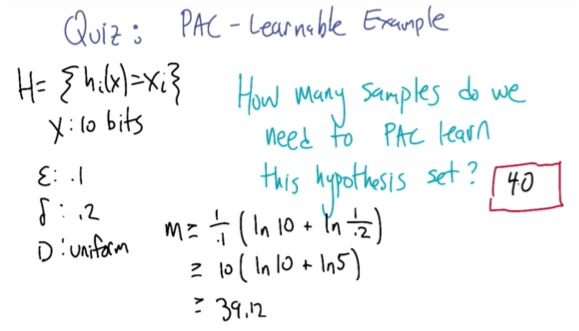 Quiz: PAC-Learnable Example
H= {hᵢ(x)=xᵢ}
X: 10 bits
ε: .1
δ: .2
D: uniform
How many samples do we
need to PAC learn
this hypothesis set? 40
m ≥ 1/.1 (ln 10 + ln 1/.2)
≥ 10 (ln 10 + ln 5)
≥ 39.12